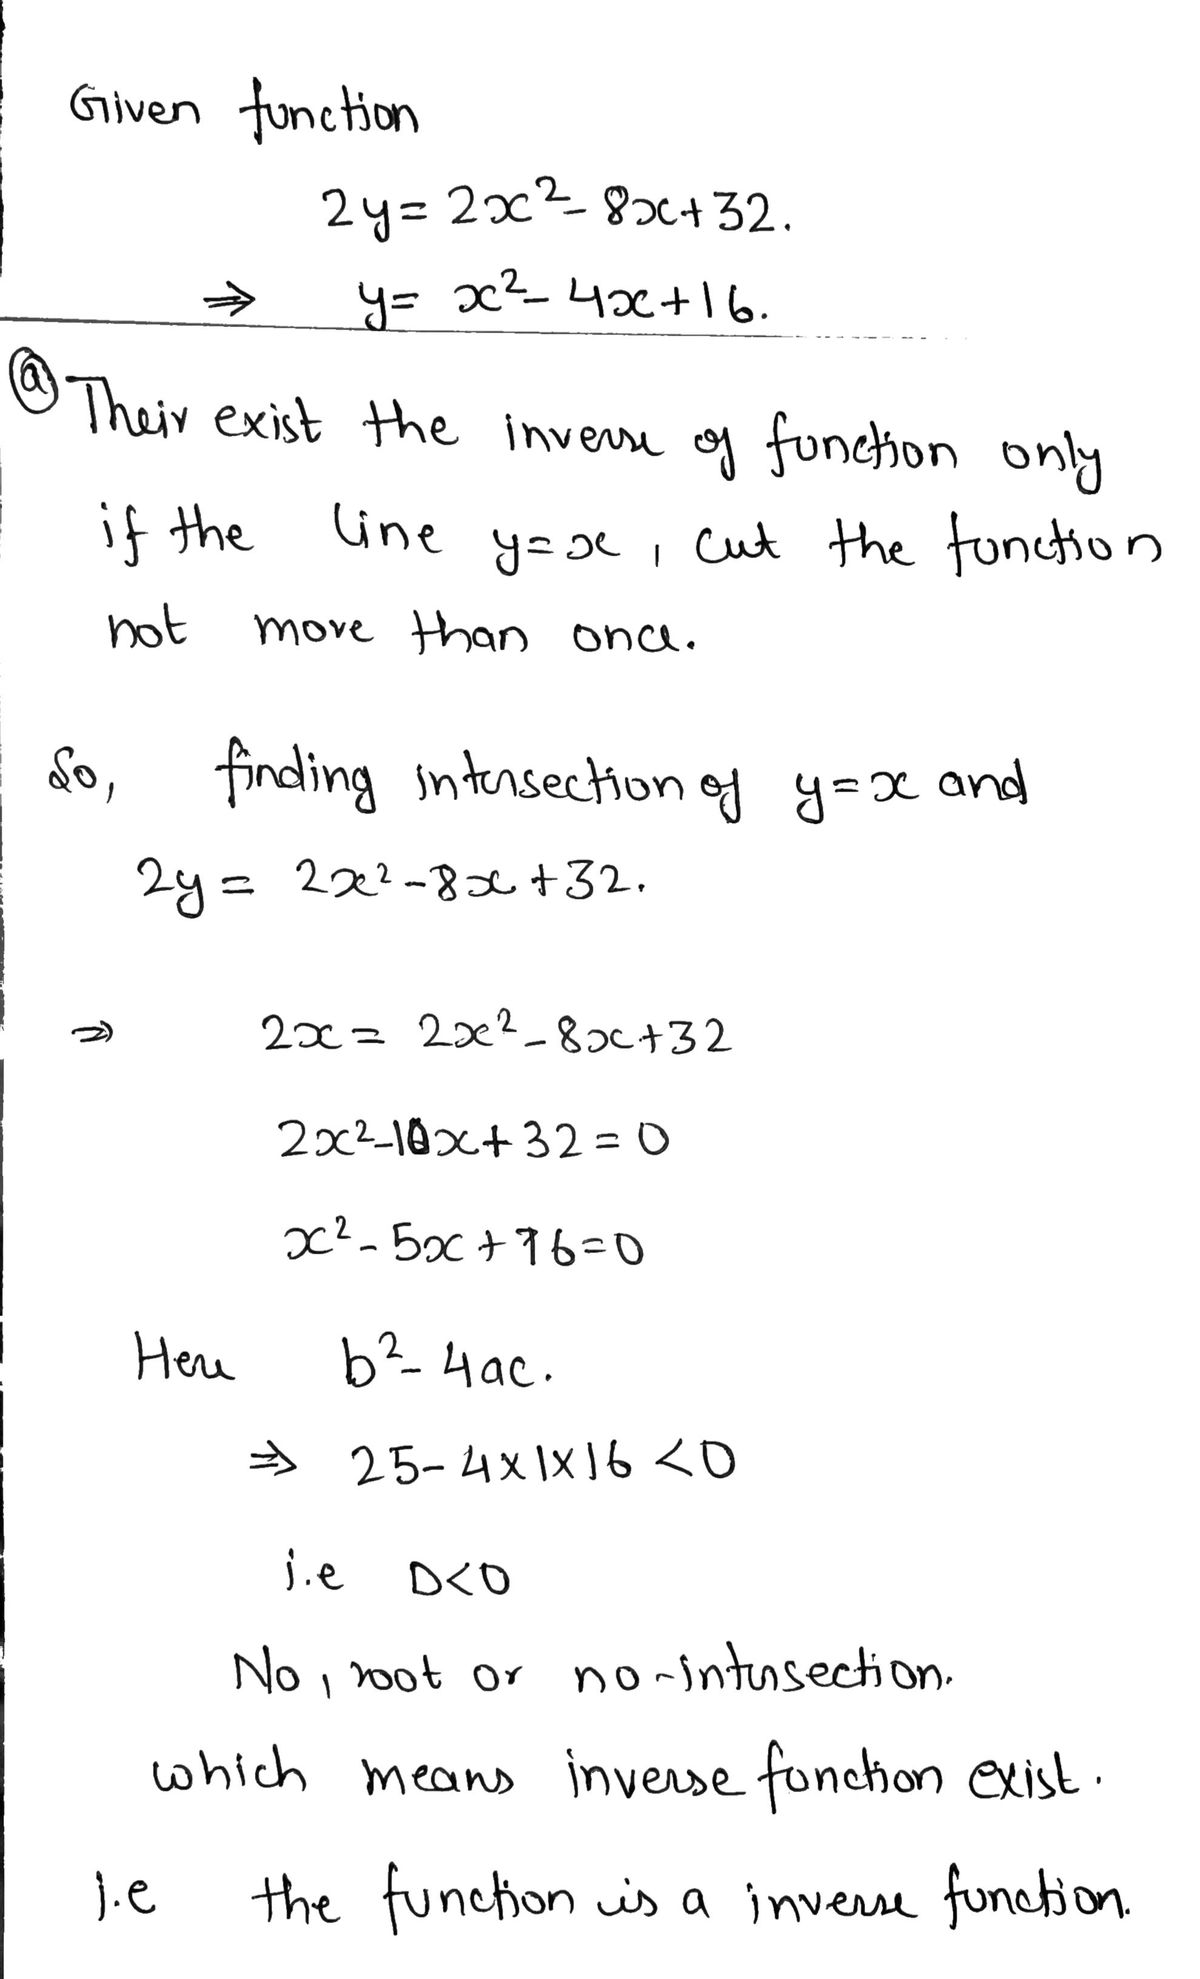 Given function
2y = 2x² - 8x + 32.
⇒ y = x² - 4x + 16.
ⓐ Their exist the inverse of function only
if the line y = x, cut the function
not more than once.
So, finding intersection of y = x and
2y = 2x² - 8x + 32.
⇒ 2x = 2x² - 8x + 32
2x² - 10x + 32 = 0
x² - 5x + 16 = 0
Here b² - 4ac.
⇒ 25 - 4×1×16 < 0
i.e D < 0
No, root or no-intersection.
which means inverse function exist.
i.e the function is a inverse function.